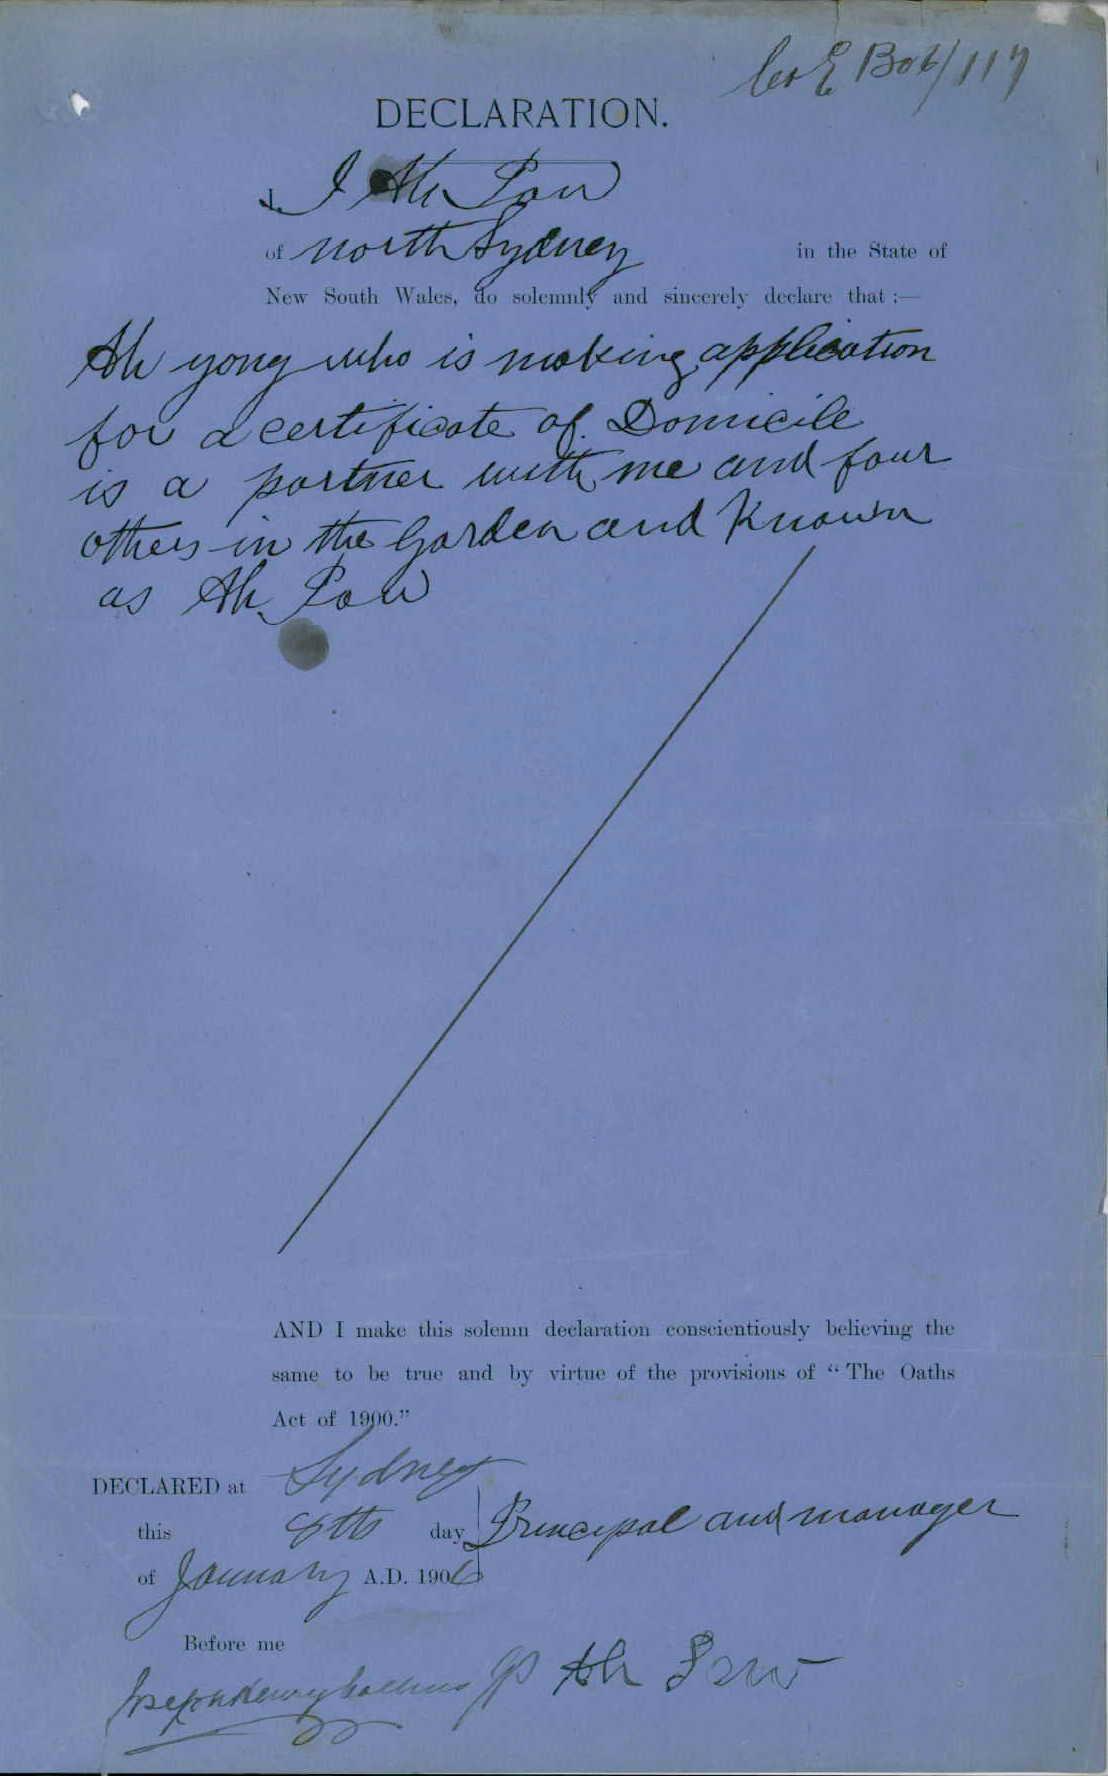 B06/117
DECLARATION.
I, I Ah Low
of North Sydney in the State of
New South Wales, do solemnly and sincerely declare that :—
Ah yong who is making application
for a certificate of Domicile
is a partner with me and four
others in the Garden and Known
as Ah Low
AND I make this solemn declaration conscientiously believing the
same to be true and by virtue of the provisions of "The Oaths
Act of 1900."
DECLARED at Sydney
this 8th day Principal and manager
of January A.D. 1906
Before me
Joseph Henry JP Ah Low